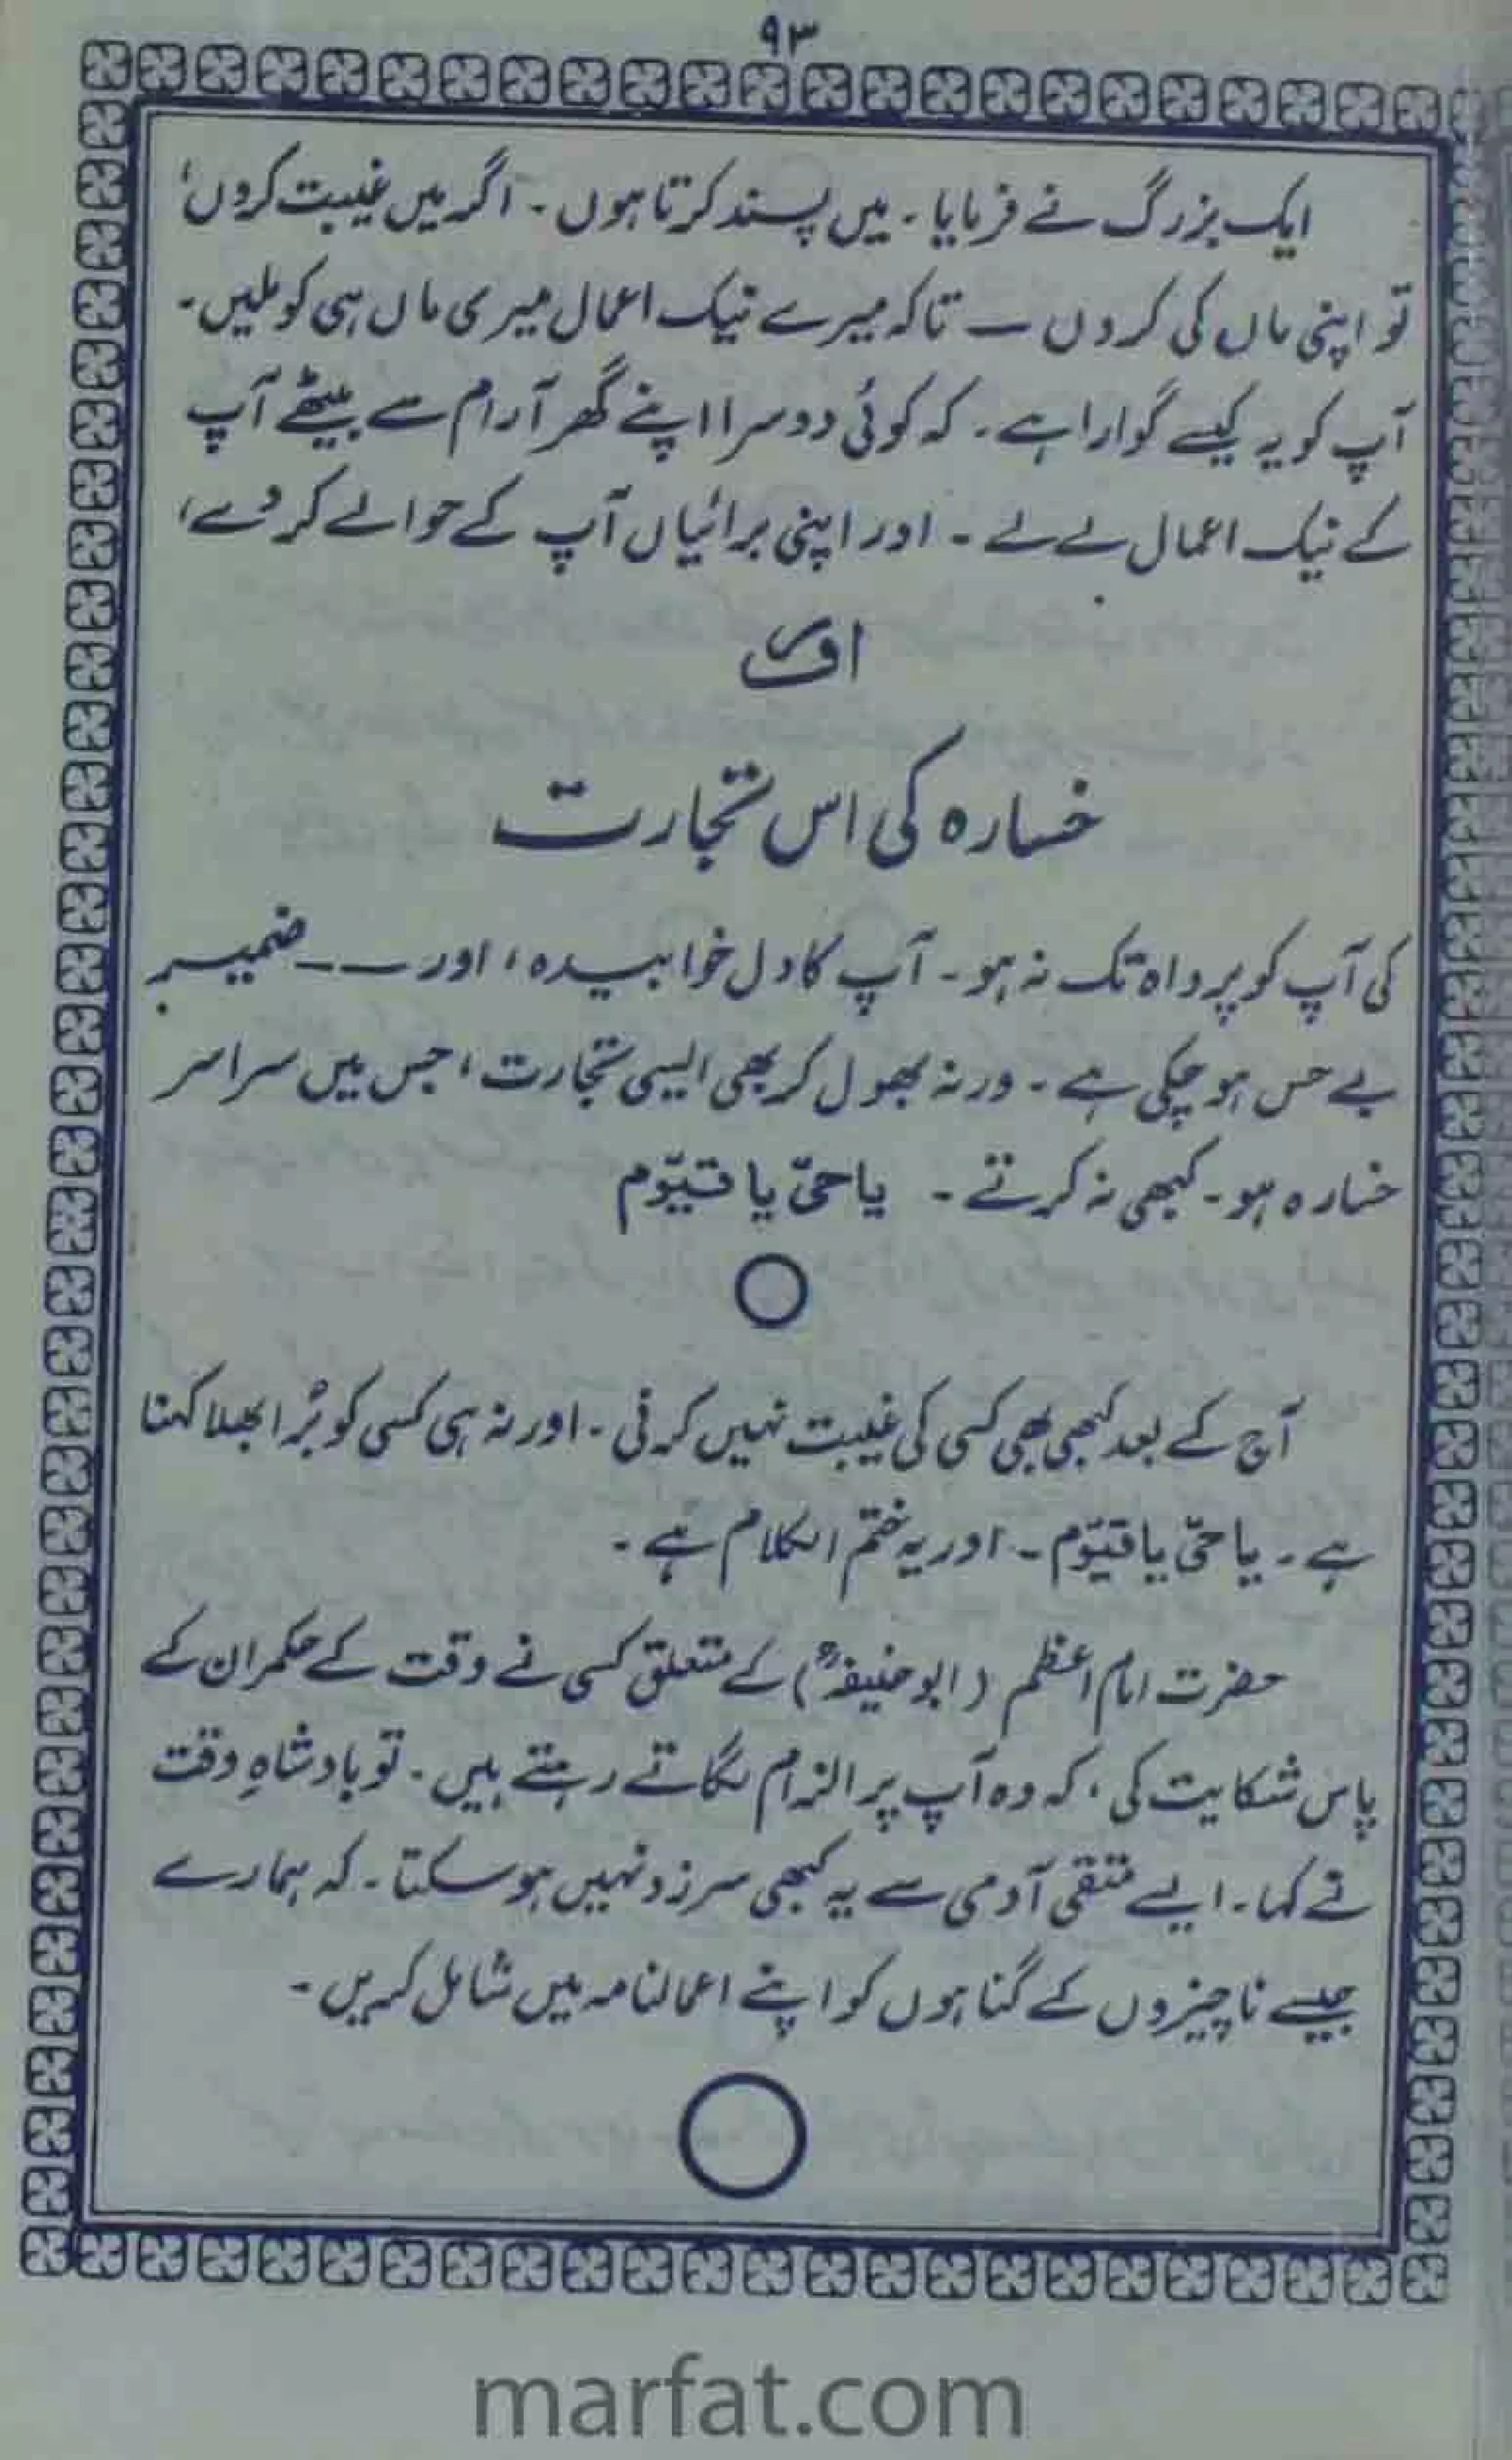 ۹۳
ایک بزرگ نے فرمایا ۔ میں پسند کرتا ہوں ۔ اگر میں غیبت کروں،
تو اپنی ماں کی کروں ــ تاکہ میرے نیک اعمال میری ماں ہی کو ملیں ۔
آپ کو یہ کیسے گوارا ہے ۔ کہ کوئی دوسرا اپنے گھر آرام سے بیٹھے آپ
کے نیک اعمال لے لے ۔ اور اپنی برائیاں آپ کے حوالے کر دے،
اور
خسارہ کی اس تجارت
کی آپ کو پرواہ تک نہ ہو ۔ آپ کا دل خوابیدہ، اور ــــ ضمیر
بے حس ہو چکی ہے ۔ ورنہ بھول کر بھی ایسی تجارت، جس میں سراسر
خسارہ ہو ۔ کبھی نہ کرتے ۔ یا حیّ یا قیّوم
آج کے بعد کبھی بھی کسی کی غیبت نہیں کرنی ۔ اور نہ ہی کسی کو بُرا بھلا کہنا
ہے ۔ یا حیّ یا قیّوم ۔ اور یہ ختم الکلام ہے ۔
حضرت امام اعظم (ابو حنیفہؒ) کے متعلق کسی نے وقت کے حکمران کے
پاس شکایت کی، کہ وہ آپ پر الزام لگاتے رہتے ہیں ۔ تو بادشاہِ وقت
نے کہا ۔ ایسے متقی آدمی سے یہ کبھی سرزد نہیں ہو سکتا ۔ کہ ہمارے
جیسے ناچیزوں کے گناہوں کو اپنے اعمالنامہ میں شامل کریں ۔
marfat.com